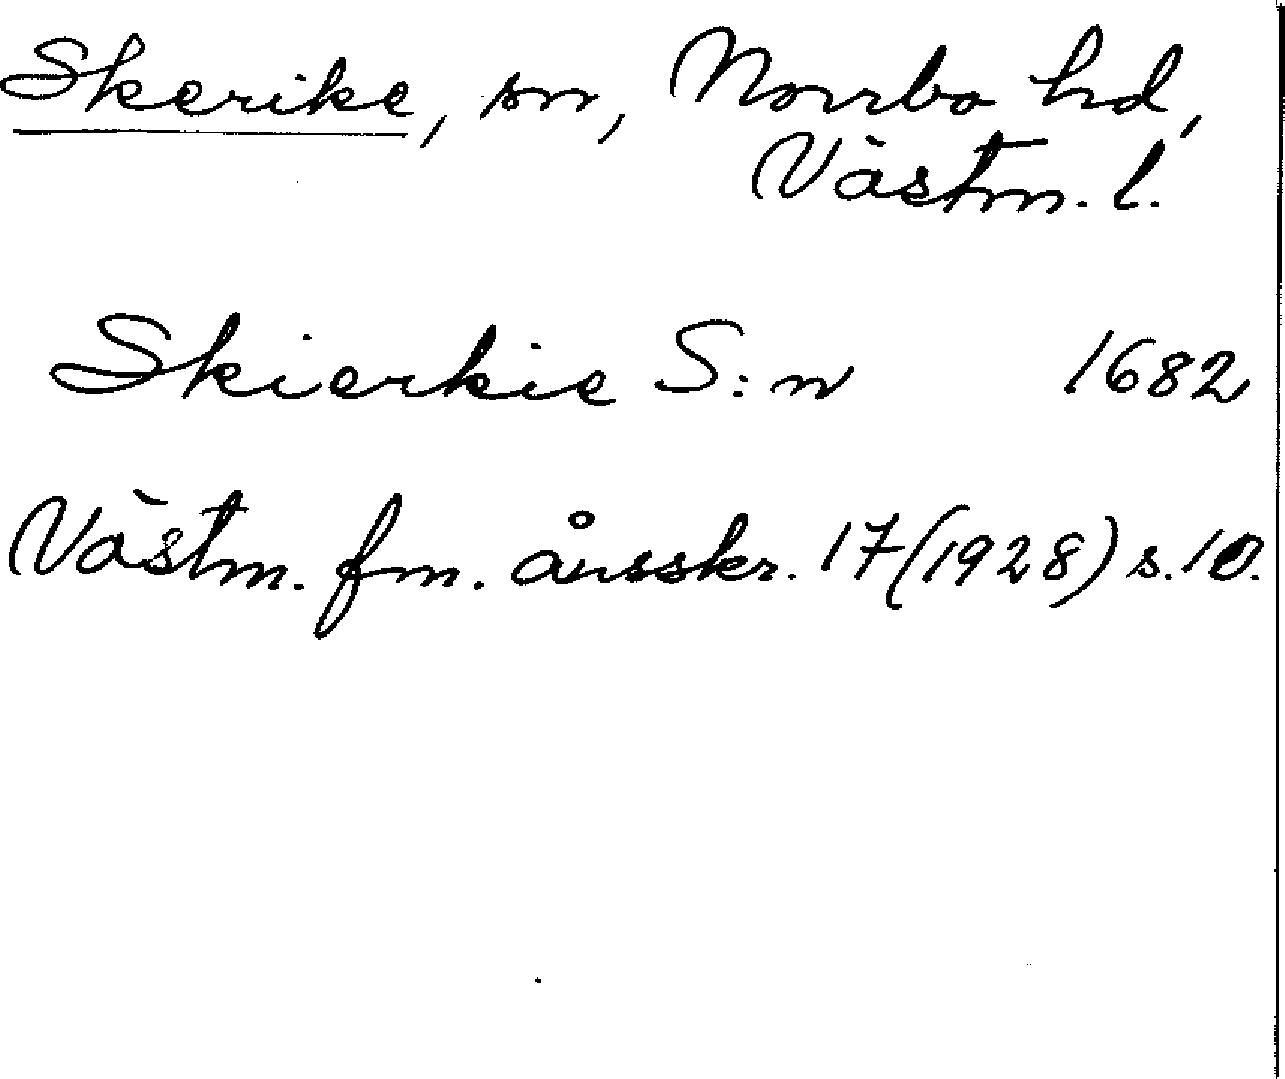 Skerike, sn, Norrbo hd,
Västm. l.
Skierkie S:n 1682
Västm. fm. årsskr. 17 (1928) s. 10.